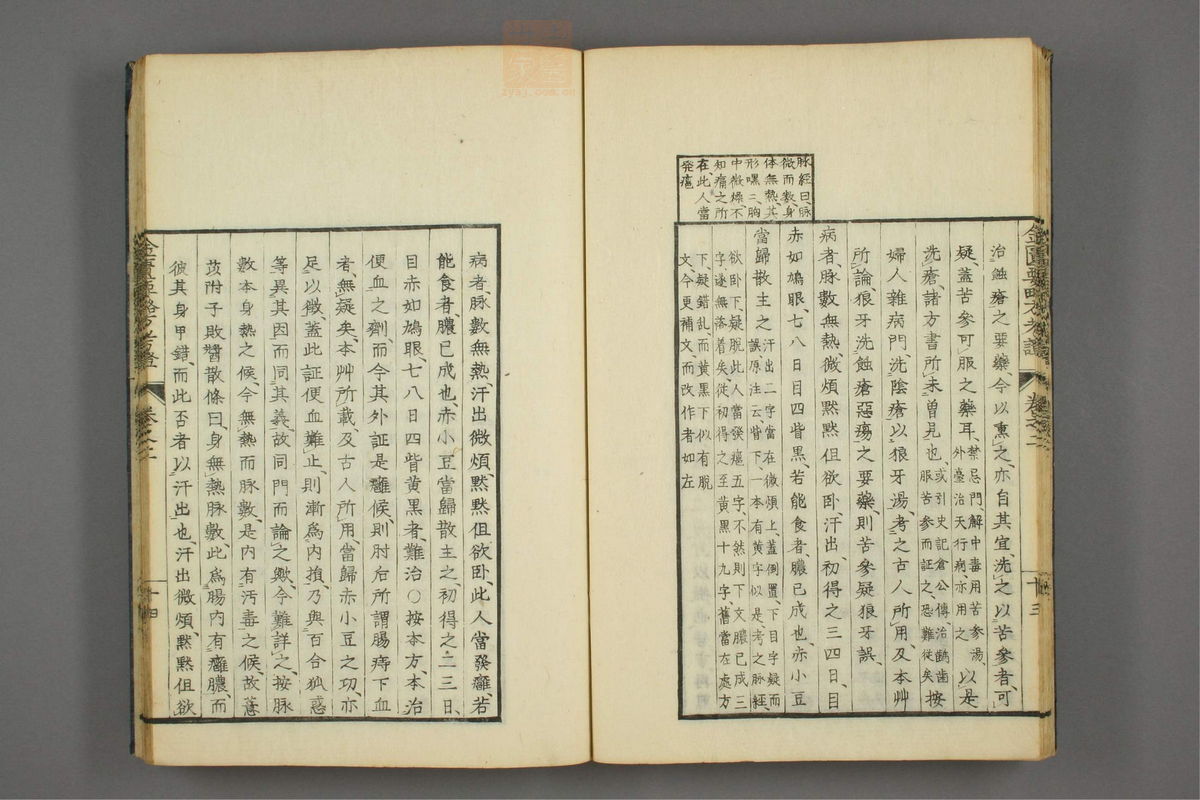 脉經曰、脉
微而數、身
体無熱、其
形嘿ヽ、胸
中微燥、不
知痛之所
在、此人當
発癰
治蝕瘡之要藥、今以熏之、亦自其宜、洗之以苦參者、可
疑、蓋苦參可服之藥耳、禁忌門、解中毒用苦參湯、外臺治天行病亦用之、以是
洗瘡、諸方書所未曽見也、或引史記倉公傳、治齲歯服苦參而証之、恐難従矣、按
婦人雜病門、洗陰瘡以狼牙湯、考之古人所用、及本艸
所論、狼牙洗蝕瘡惡瘍之要藥、則苦參疑狼牙誤、
病者、脉數無熱、微煩黙黙但欲卧、汗出、初得之三四日、目
赤如鳩眼、七八日目四眥黒、若能食者、膿已成也、赤小豆
當歸散主之、汗出二字當在微煩上、蓋倒置、下目字疑而誤、原注云、眥下、一本有黄字似是、考之脉經、
欲卧下、疑脱此人當發癰五字、不然則下文膿已成三字遂無落着矣、従初得之至黄黒十九字、舊當在處方
下、疑錯乱、而黄黒下似有脱文、今更補文、而改作者如左
金匱要略方考證 卷之二 十三
病者、脉數無熱、汗出微煩、黙黙但欲卧、此人當發癰、若
能食者、膿已成也、赤小豆當歸散主之、初得之、二三日、
目赤如鳩眼、七八日四眥黄黒者、難治○按本方、本治
便血之劑、而今其外証是癰候、則肘后所謂腸痔下血
者、無疑矣、本艸所載及古人所用、當歸赤小豆之功、亦
足以徴、蓋此証便血難止、則漸爲内損、乃與百合狐惑
等異其因而同其義、故同門而論之歟、今難詳之、按脉
數本身熱之候、今無熱而脉數、是内有汚毒之候、故薏
苡附子敗醬散條曰、身無熱脉數、此爲腸内有癰膿、而
彼其身甲錯、而此否者以汗出也、汗出微煩、黙黙但欲
金匱要略方考證 卷之二 十四